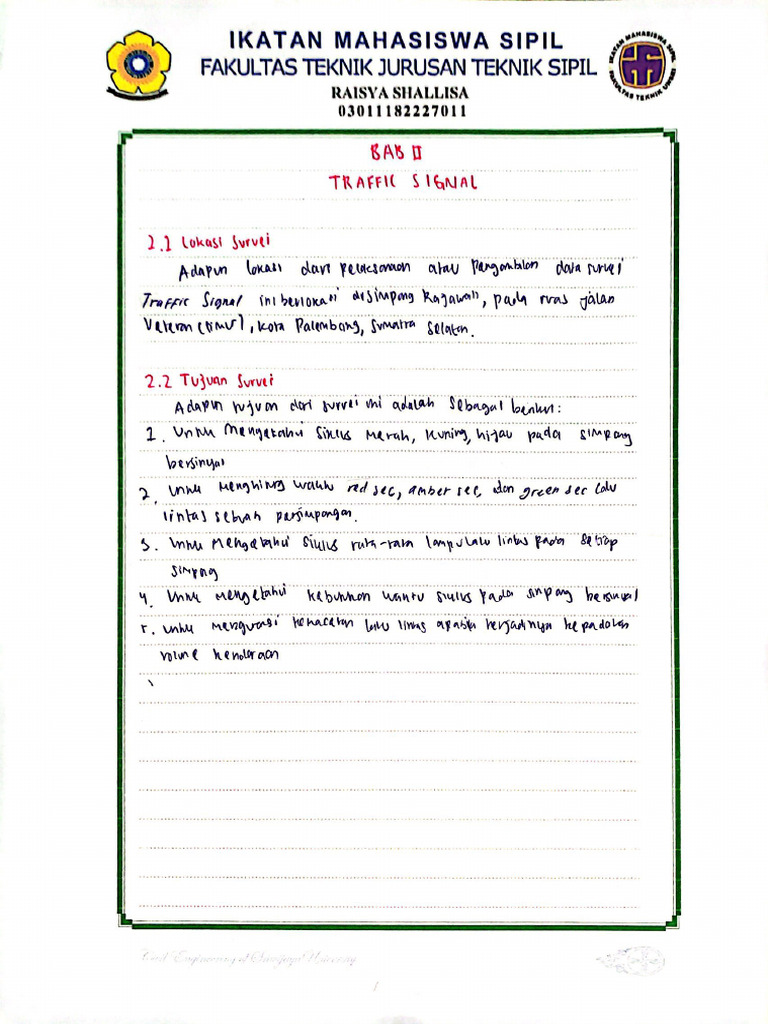 IKATAN MAHASISWA SIPIL
FAKULTAS TEKNIK JURUSAN TEKNIK SIPIL
RAISYA SHALLISA
03011182227011
IKATAN MAHASISWA SIPIL
FAKULTAS TEKNIK UNSRI
BAB II
TRAFFIC SIGNAL
2.1 Lokasi Survei
Adapun lokasi dari pelaksanaan atau pengambilan data survei
Traffic Signal ini berlokasi disimpang Rajawali, pada ruas jalan
Veteran (Timur), Kota Palembang, Sumatra Selatan.
2.2 Tujuan Survei
Adapun tujuan dari survei ini adalah sebagai berikut:
1. Untuk mengetahui siklus merah, kuning, hijau pada simpang
bersinyal
2. Untuk menghitung waktu red sec, amber sec, dan green sec lalu
lintas sebuah persimpangan.
3. Untuk mengetahui siklus rata-rata lampu lalu lintas pada setiap
simpang
4. Untuk mengetahui kebutuhan waktu siklus pada simpang bersinyal
5. Untuk mengurasi kemacetan lalu lintas apabila terjadinya kepadatan
volume kendaraan
Civil Engineering of Sriwijaya University